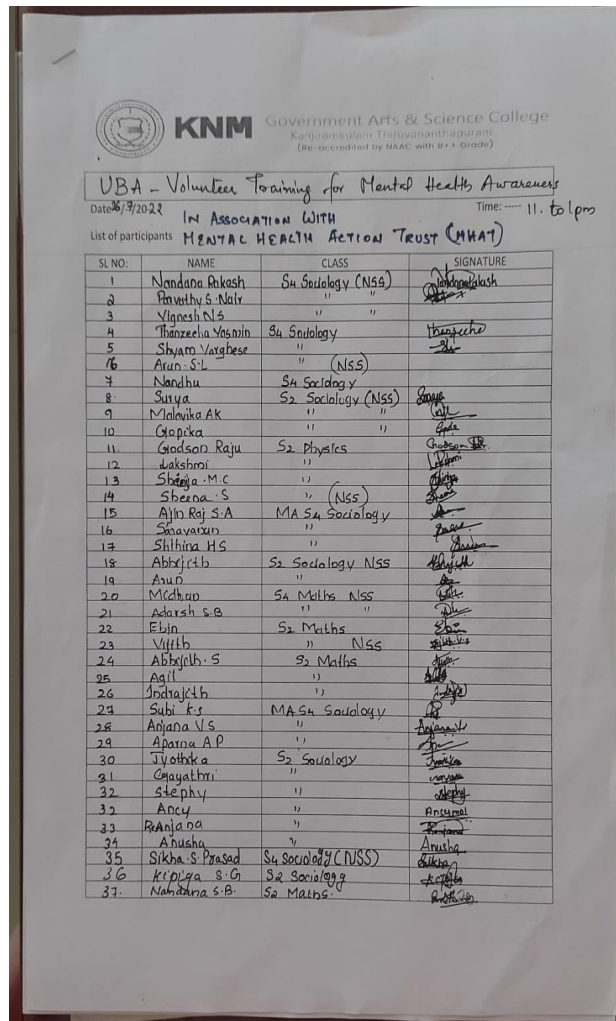 KNM Government Arts & Science College
Kanjiramkulam Thiruvananthapuram
(Re-accredited by NAAC with B++ Grade)
UBA - Volunteer Training for Mental Health Awareness
Date 26/9/2022 Time: ---- 11. to 1pm
IN ASSOCIATION WITH
List of participants MENTAL HEALTH ACTION TRUST (MHAT)
SL NO: NAME CLASS SIGNATURE
1 Nandana Prakash S4 Sociology (NSS) Nandana Prakash
2 Parvathy S. Nair " "
3 Vignesh N S " "
4 Thanzeeha Yasmin S4 Sociology Thanzeeha
5 Shyam Varghese "
6 Arun. S.L " (NSS)
7 Nandhu S4 Sociology
8 Surya S2 Sociology (NSS) Surya
9 Malavika AK " "
10 Gopika " "
11 Godson Raju S2 Physics Godson
12 Lakshmi " Lakshmi
13 M.C "
14 Sheena. S " (NSS) Sheena
15 Ajin Raj S.A MA S4 Sociology
16 Saravanan "
17 Shihina HS "
18 Abhijith S2 Sociology NSS Abhijith
19 Arun "
20 Midhun S4 Maths NSS
21 Adarsh S.B " "
22 Ebin S2 Maths Ebin
23 Vijith " NSS
24 Abhijith. S S2 Maths
25 Agil "
26 Indrajith "
27 Subi K.S MA S4 Sociology
28 Anjana V S " Anjana V S
29 Aparna A P "
30 Jyothika S2 Sociology Jyothika
31 Gayathri "
32 Stephy " Stephy
32 Ancy " Ancymol
33 Anjana "
34 Anusha " Anusha
35 Sikha. S. Prasad S4 Sociology (NSS) Sikha
36 S.G S2 Sociology
37. Nandana S.B. S2 Maths.